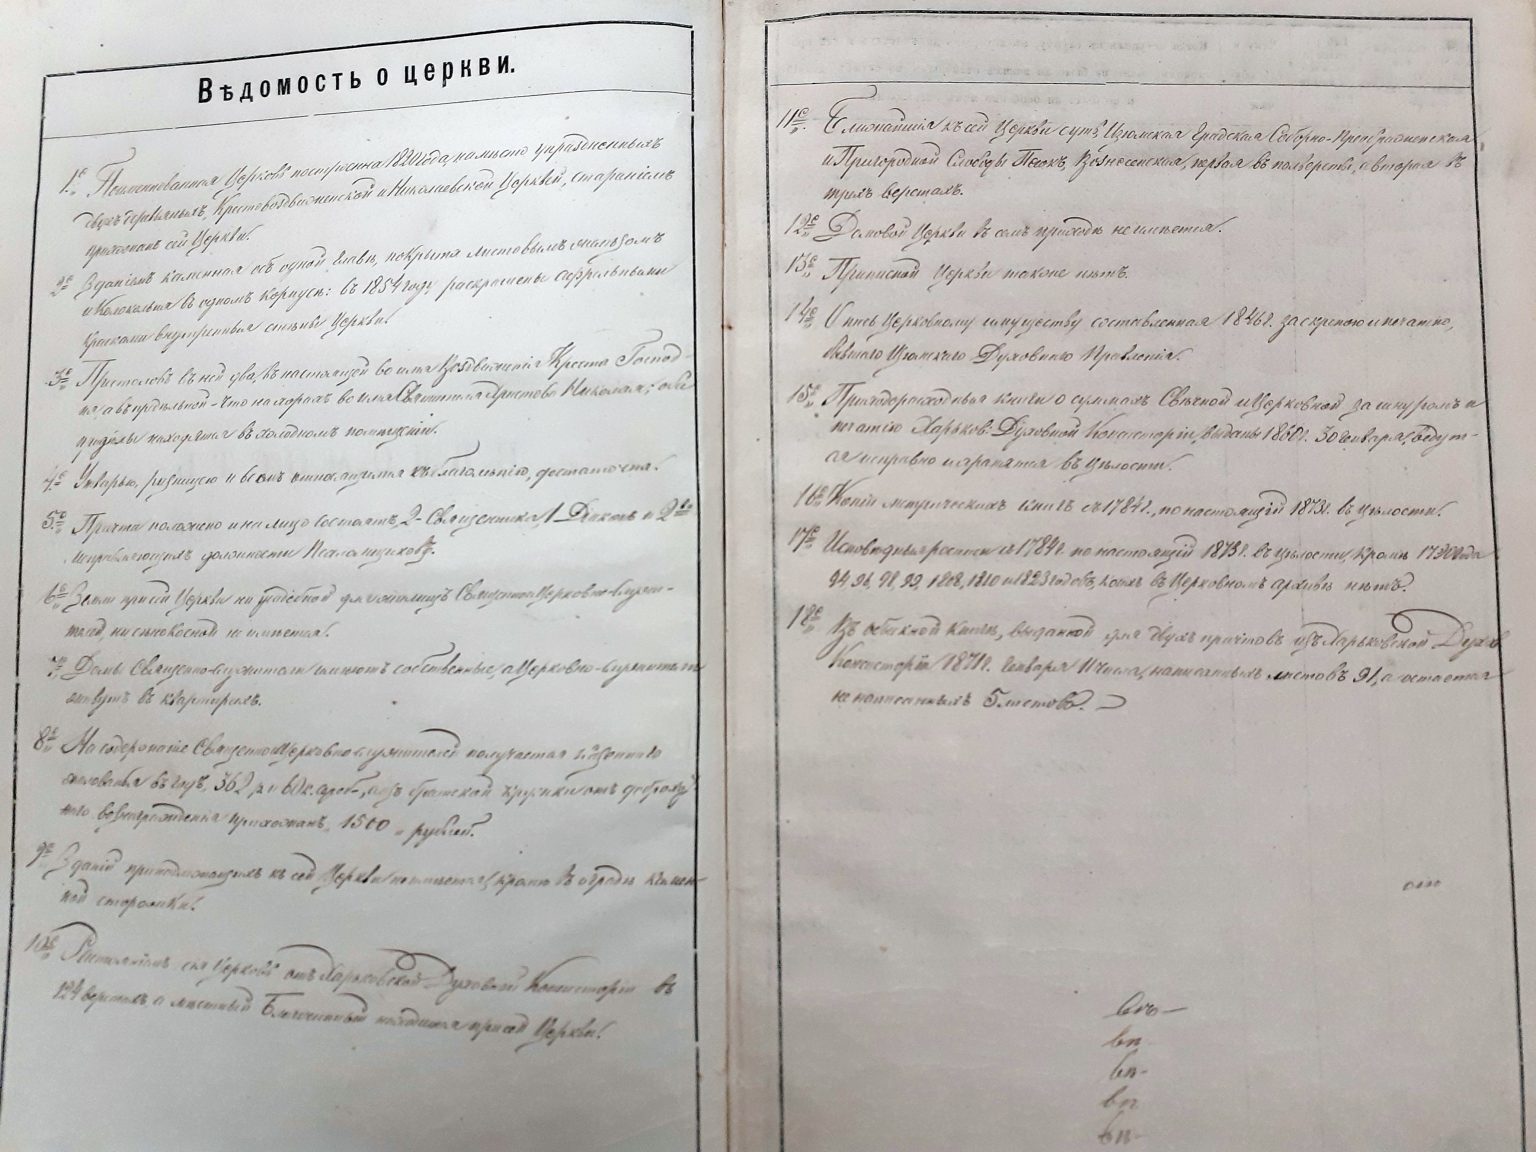 Вѣдомость о церкви.
1е Поименованная Церковь построена 18 года, на мѣсто упраздненныхъ
двухъ деревянныхъ, Крестовоздвиженской и Николаевской Церквей, стараніемъ
прихожанъ сей Церкви.
2е Зданіемъ каменная объ одной главѣ, покрыта листовымъ желѣзомъ
и Колокольня въ одномъ корпусѣ: въ 1854 году раскрашены
красками внутреннія стѣны Церкви.
3е Престоловъ въ ней два, въ настоящей во имя Воздвиженія Креста Господ-
ня, а въ придѣльной - что на хорахъ во имя Святителя Христова Николая; оба
придѣлы находятся въ холодномъ помѣщеніи.
4е Утварью, ризницею и всемъ относящимся къ благолѣпію, достаточна.
5е Причта положено и на лицо состоитъ, 2 Священника 1 Діаконъ и 2
исправляющихъ должности Псаломщиковъ.
6е Земли при сей Церкви ни усадебной для жилищъ Священно Церковно-служи-
телей, ни сѣнокосной не имѣется.
7е Домы Священно-служители имѣютъ собственные, а Церковно-служители
живутъ въ квартирахъ.
8е На содержаніе Священно Церковно-служителей получается казеннаго
жалованья въ годъ, 362 р. и 60 к. сереб., а изъ братской кружки отъ доброволь
наго вознагражденія прихожанъ, 1500 „ рублей.
9е Зданій принадлежащихъ къ сей Церкви не имѣется, кромѣ въ оградѣ камен-
ной сторожки.
10е Разстояніемъ сія Церковь отъ Харьковской Духовной Консисторіи въ
124 верстахъ, а мѣстный Благочинный находится при сей Церкви.
11е Ближайшія къ сей Церкви суть Изюмская Градская Соборно-Преображенская
и Пригородной Слободы Песокъ, Вознесенская, первая въ полверстѣ, а вторая въ
трехъ верстахъ.
12е Домовой Церкви въ семъ приходѣ не имѣется.
13е Приписной Церкви также нѣтъ.
14е Опись Церковному имуществу составленная 1846 г. за скрепою и печатью,
бывшаго Изюмскаго Духовнаго Правленія.
15е Приходорасходныя книги о суммахъ Свѣчной и Церковной за шнуромъ и
печатію Харьков. Духовной Консисторіи, выданы 18 г. 30 Января, ведут-
ся исправно и хранятся въ цѣлости.
16е Копіи метрическихъ книгъ съ 1784 г., по настоящій 1873 г. въ цѣлости.
17е Исповѣдныя росписи съ 1784 г. по настоящій 1873 г. въ цѣлости, кромѣ года
94, 96, 98, 99, 1808, 1810 и 1823 годовъ, коихъ въ Церковномъ архивѣ нѣтъ.
18е Въ обыскной книгѣ, выданной для двухъ причтовъ изъ Харьковской Духов.
Консисторіи 1871 г. Января 11 числа, написанныхъ листовъ 91, а остается
не написанныхъ 5 листовъ.